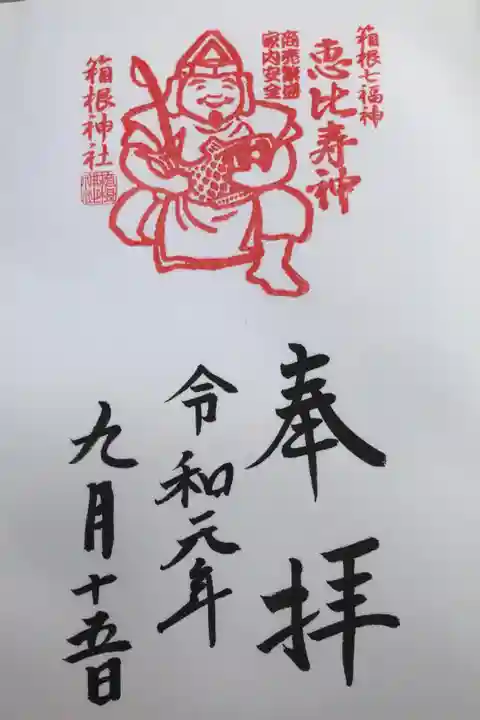 箱根七福神
恵比寿神
商売繁盛
家内安全
箱根神社
奉拝
令和元年
九月十五日